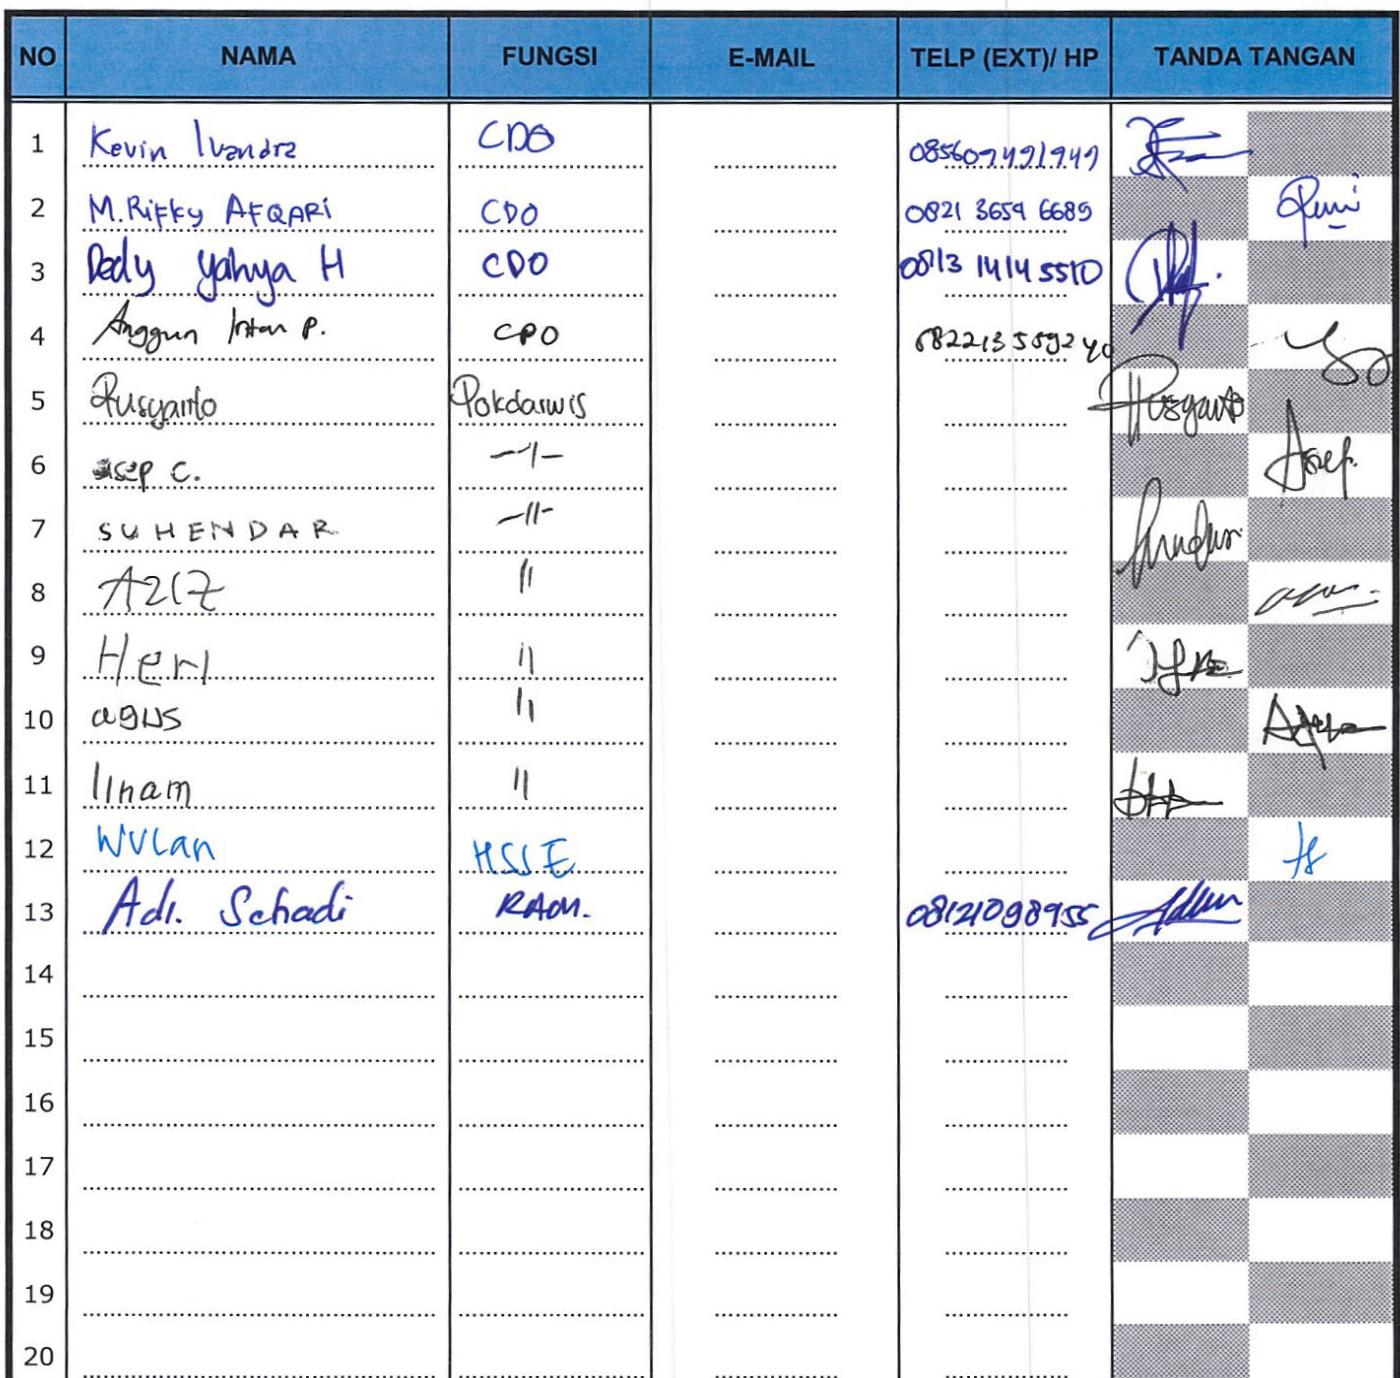 NO NAMA FUNGSI E-MAIL TELP (EXT)/ HP TANDA TANGAN
1 Kevin Ivandra CDO
2 M. Rifky AFQARi CDO 0821 3659 6689
3 Dedy Yahya H CDO 0813 1414 5510
4 Anggun Intan P. CDO
5 Rusyanto Pokdarwis Rusyanto
6 asep C. -"- Asep
7 SUHENDAR -"-
8 AZIZ "
9 Heri "
10 agus "
11 Ilham "
12 WULan HSSE
13 Adi. Setiadi RAM. 08121098955
14
15
16
17
18
19
20